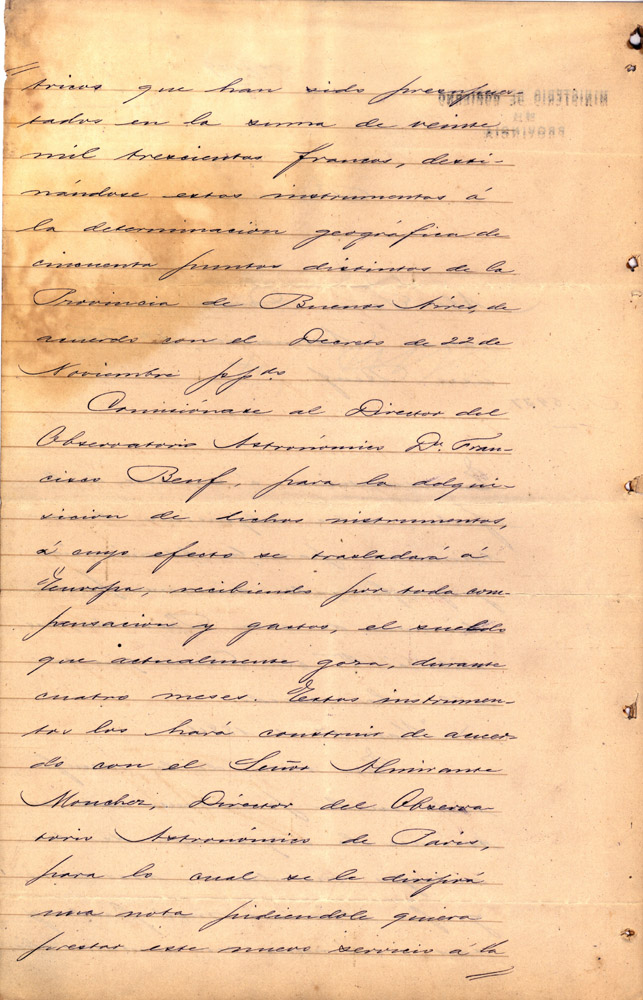 tricos que han sido presupues-
tados en la suma de veinte
mil trescientos francos, desti-
nándose estos instrumentos á
la determinacion geográfica de
cincuenta puntos distintos de la
Provincia de Buenos Aires, de
acuerdo con el Decreto de 22 de
Noviembre ppdo
Comisiónase al Director del
Observatorio Astronómico Dn. Fran-
cisco Beuf, para la adqui-
sicion de dichos instrumentos,
á cuyo efecto se trasladará á
Europa, recibiendo por toda com-
pensacion y gastos, el sueldo
que actualmente goza, durante
cuatro meses. Estos instrumen-
tos los hará construir de acuer-
do con el Señor Almirante
Mouchez, Director del Observa-
torio Astronómico de Paris,
para lo cual se le dirijirá
una nota pidiendole quiera
prestar este nuevo servicio á la
MINISTERIO DE GOBIERNO
PROVINCIA